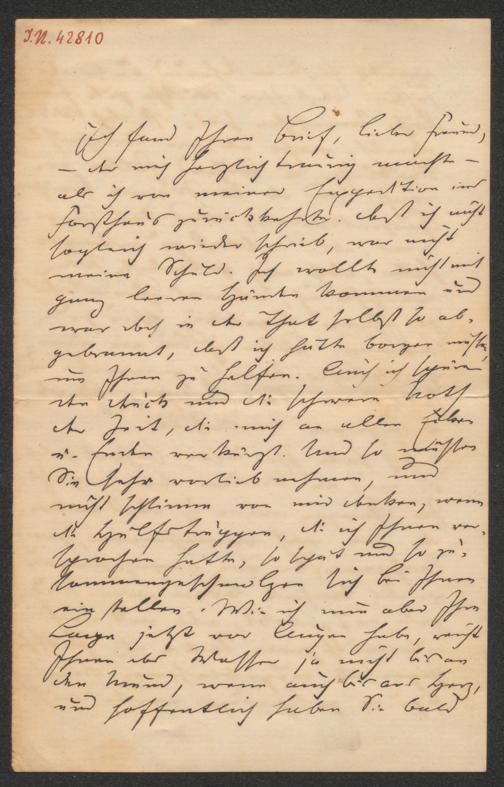 I.N. 42810
Ich fand Ihren Brief, lieber Freund,
— der mich herzlich traurig machte —
als ich von meiner Expedition ins
Forsthaus zurückkehrte. Daß ich nicht
sogleich wieder schrieb, war nicht
meine Schuld. Ich wollte nicht mit
ganz leeren Händen kommen und
war doch in der That selbst so ab-
gebrannt, daß ich hätte borgen müssen,
um Ihnen zu helfen. Auch ich spüre
den Druck und die schwere Noth
der Zeit, die mich an allen Ecken
u. Enden verkürzt. Und so müssen
Sie sehr vorlieb nehmen, und
nicht schlimm von mir denken, wenn
die Hülfstruppen, die ich Ihnen ver-
sprochen hatte, so spät und so zu-
sammengeschmolzen sich bei Ihnen
einstellen. Wie ich nun aber Ihre
Lage jetzt vor Augen habe, reicht
Ihnen das Wasser ja nicht bis an
den Mund, wenn auch bis ans Herz,
und hoffentlich haben Sie bald